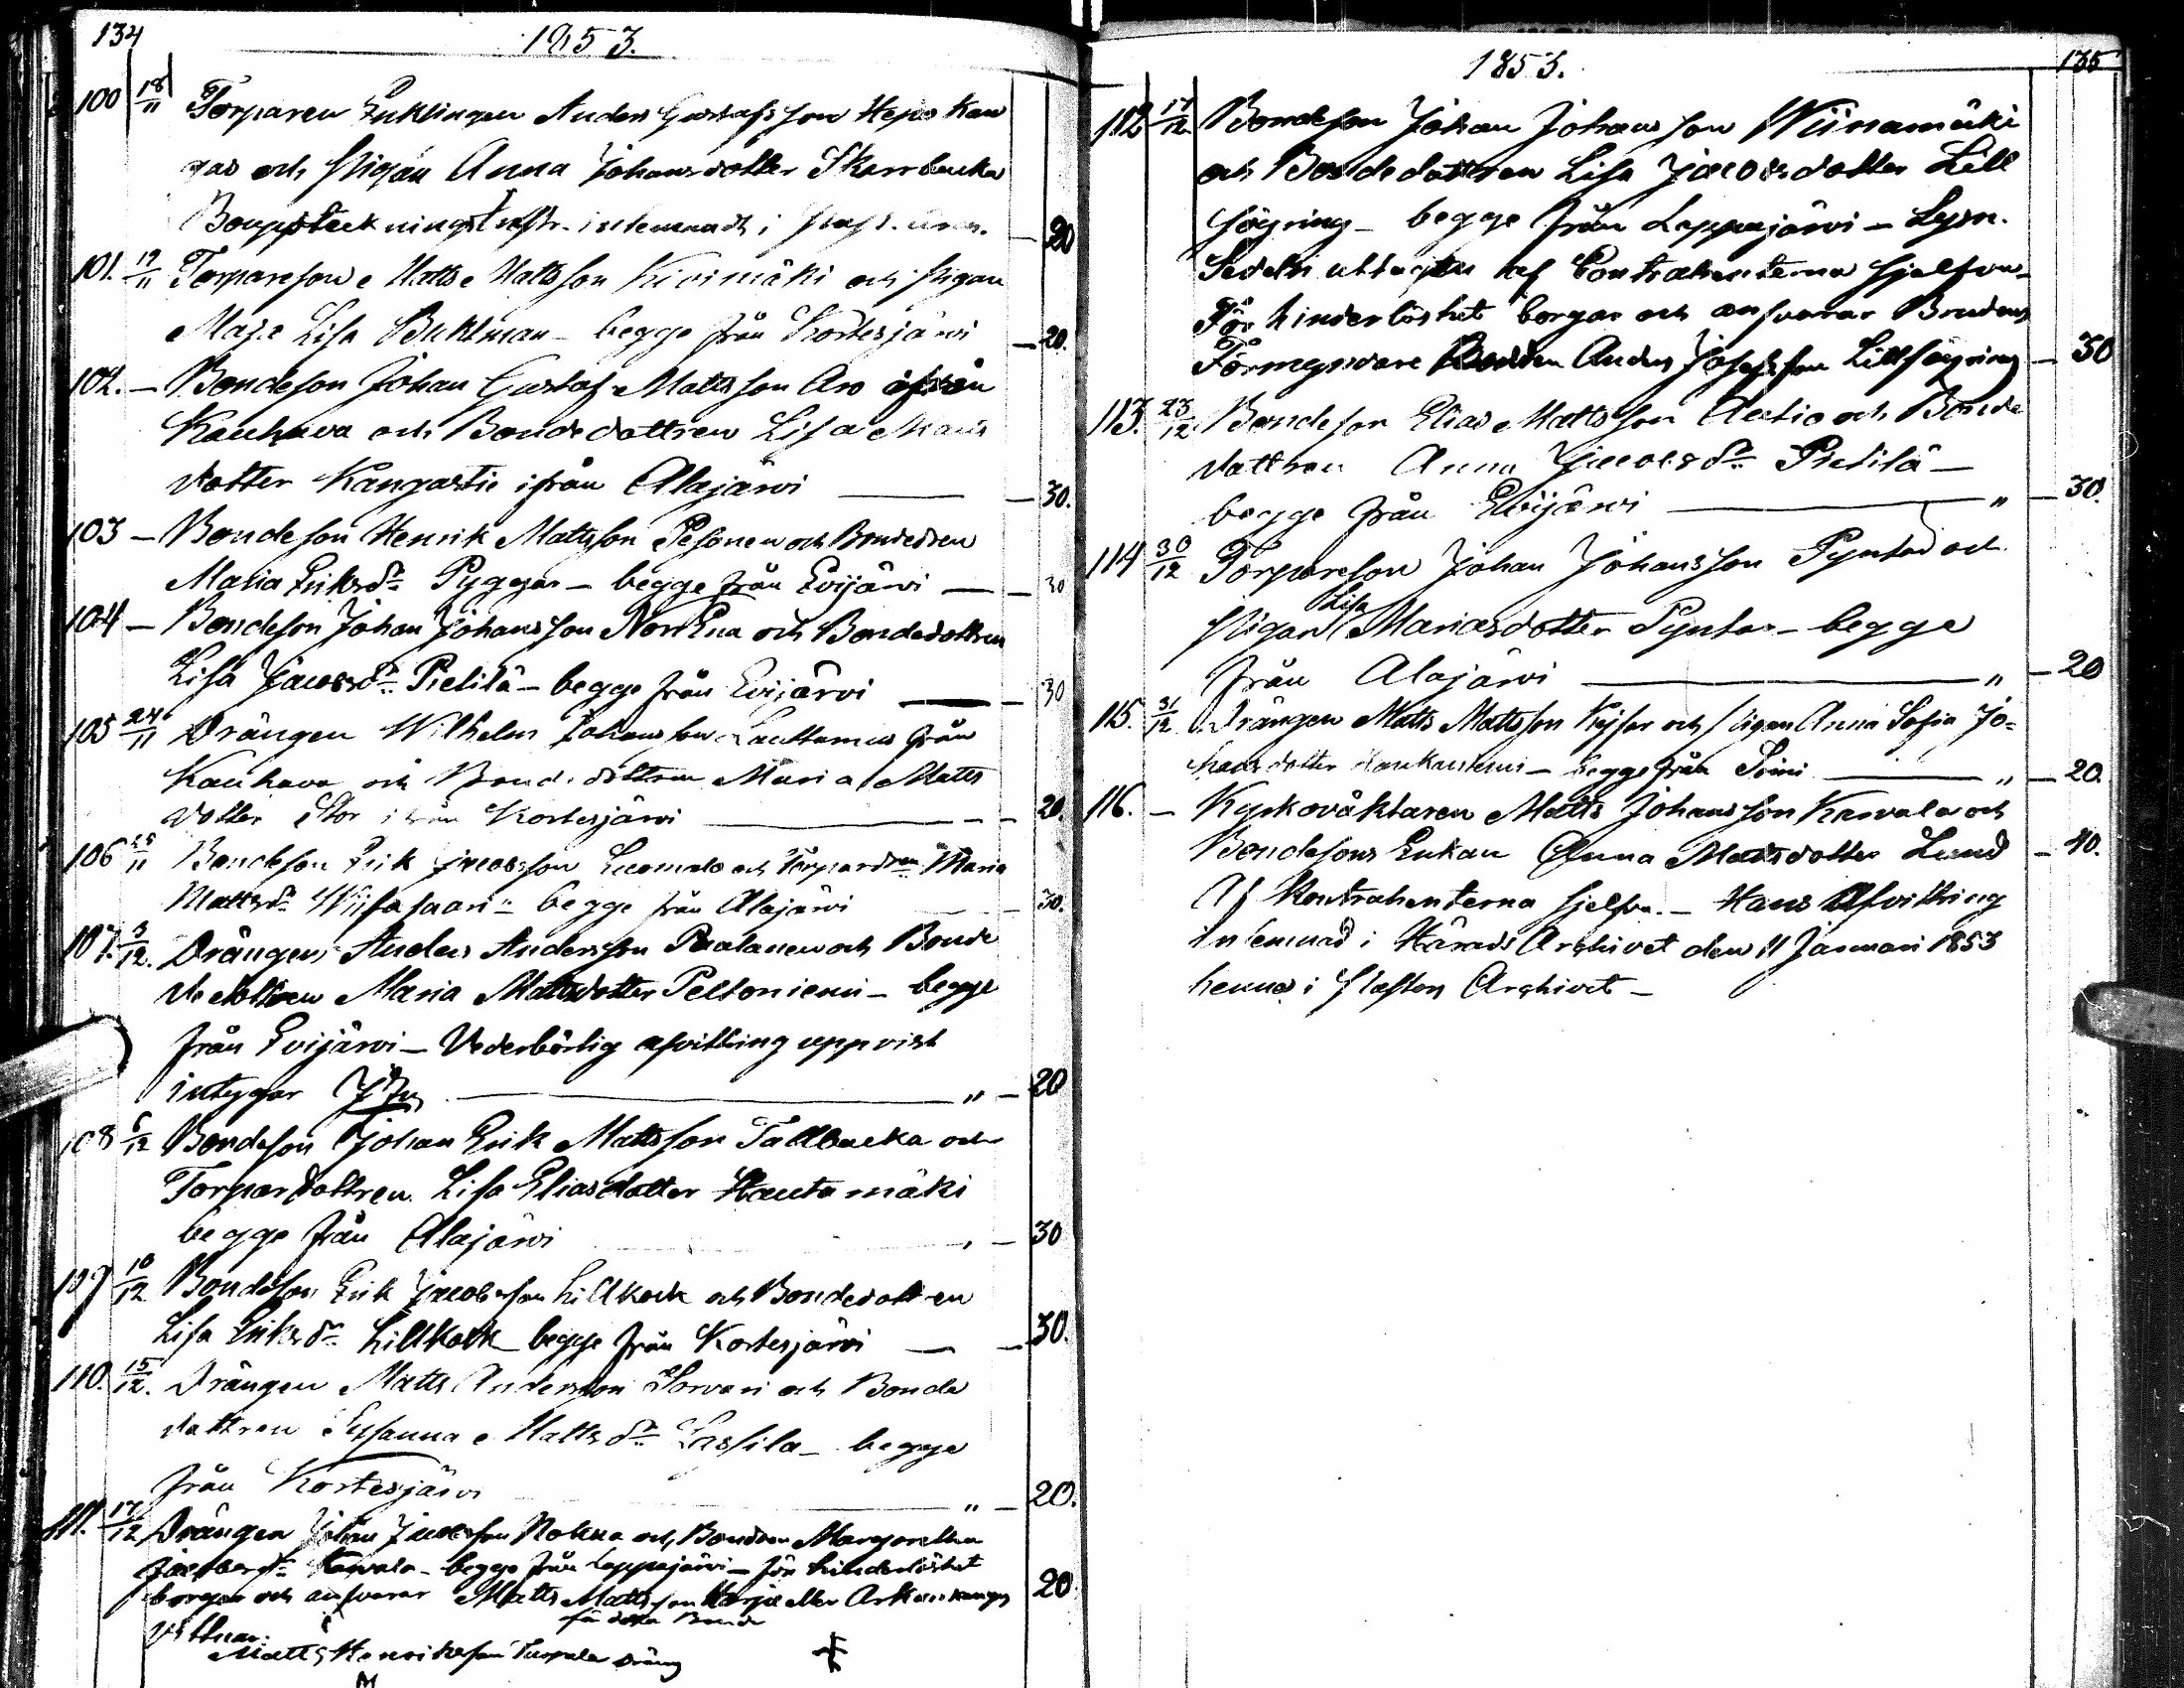 134
1853.
100 18/11 Torparen Enklingen Anders Gustafsson Hepokan
gas och Pigan Anna Johansdotter Skarrbacka
Bouppteckningsinstr. inlemnadt i 20
101. 19/11 Torpareson Matts Mattsson Kivimäki och Pigan
Maja Lisa Buktman - begge från Kortesjärvi - 20.
102. - Bondeson Johan Gustaf Mattsson Aro ifrån
Kauhava och Bondedottren Lisa Mats
dotter Kangastie ifrån Alajärvi - 30.
103 - Bondeson Henrik Mattsson Pesonen och Bondedren
Maria Eriksdr Pyggar - begge från Evijärvi - 30
104 - Bondeson Johan Johansson NorrEna och Bondedottren
Lisa Jacobsdr Pietilä - begge från Evijärvi - 30
105 24/11 Drängen Wilhelm Johansson Lauttamus från
Kauhava och Bondedottren Maria Matts
dotter Stor ifrån Kortesjärvi - 20.
106 25/11 Bondeson Erik Jacobsson Luomala och Torpardren Maria
Mattsdr Wiitasaari begge från Alajärvi - 30.
107. 3/12. Drängen Anders Andersson Paalanen och Bonde
dottren Maria Mattsdotter Peltoniemi - begge
från Evijärvi - Vederbörlig afvittring uppvist
intygar " - 20
108 6/12 Bondeson Johan Erik Mattsson Tallbacka och
Torpardottren Lisa Eliasdotter Hautamäki
begge från Alajärvi " - 30
109 10/12 Bondeson Erik Jacobsson Lillkock och Bondedottren
Lisa Eriksdr Lillkock begge från Kortesjärvi - 30.
110. 15/12. Drängen Matts Andersson Sorvari och Bonde
dottren Susanna Mattsdr Lassila - begge
från Kortesjärvi " - 20.
111. 17/12 Drängen Johan Jacobsson Nokua och Bondren Margaretha
Jacobsdr Karvala - begge från Lappajärvi - för hinderlöshet
borgar och ansvarar Matts Mattsson Harju eller Arkkukangas 20
från detta Bonde
Vittnar:
Matts Henriksson Turpula dräng
1853.
135
112 17/12 Bondeson Johan Johansson Wiinamäki
och Bondedottren Lisa Jacobsdotter Lill
söyring - begge från Lappajärvi - Lysn.
Sedeln uttagen af Contrahenterna sjelfva -
För hinderlöshet borgar och ansvarar Brudens
Förmyndare Bonden Anders Josefsson Lillsöyring - 30
113. 23/12 Bondeson Elias Mattsson Autio och Bonde
dottren Anna Jacobsdr Pietilä -
begge från Evijärvi " - 30.
114 30/12 Torpareson Johan Johansson Pynttäri och
Lisa
Pigan Mariasdotter Pyntar - begge
från Alajärvi " - 20
115. 31/12 Drängen Matts Mattsson Keisar och Pigan Anna Sofia Jo=
hansdotter Haukaniemi - begge från Soini " - 20.
116. - Kyrkoväktaren Matts Johansson Karvala och
Bondesons Enkan Anna Mattsdotter Lund - 40.
Af Kontrahenterna sjelfva. - Hans Afvittring
inlemnad i Härads Archivet den 11 Januari 1853
hennes i Pastors Archivet -